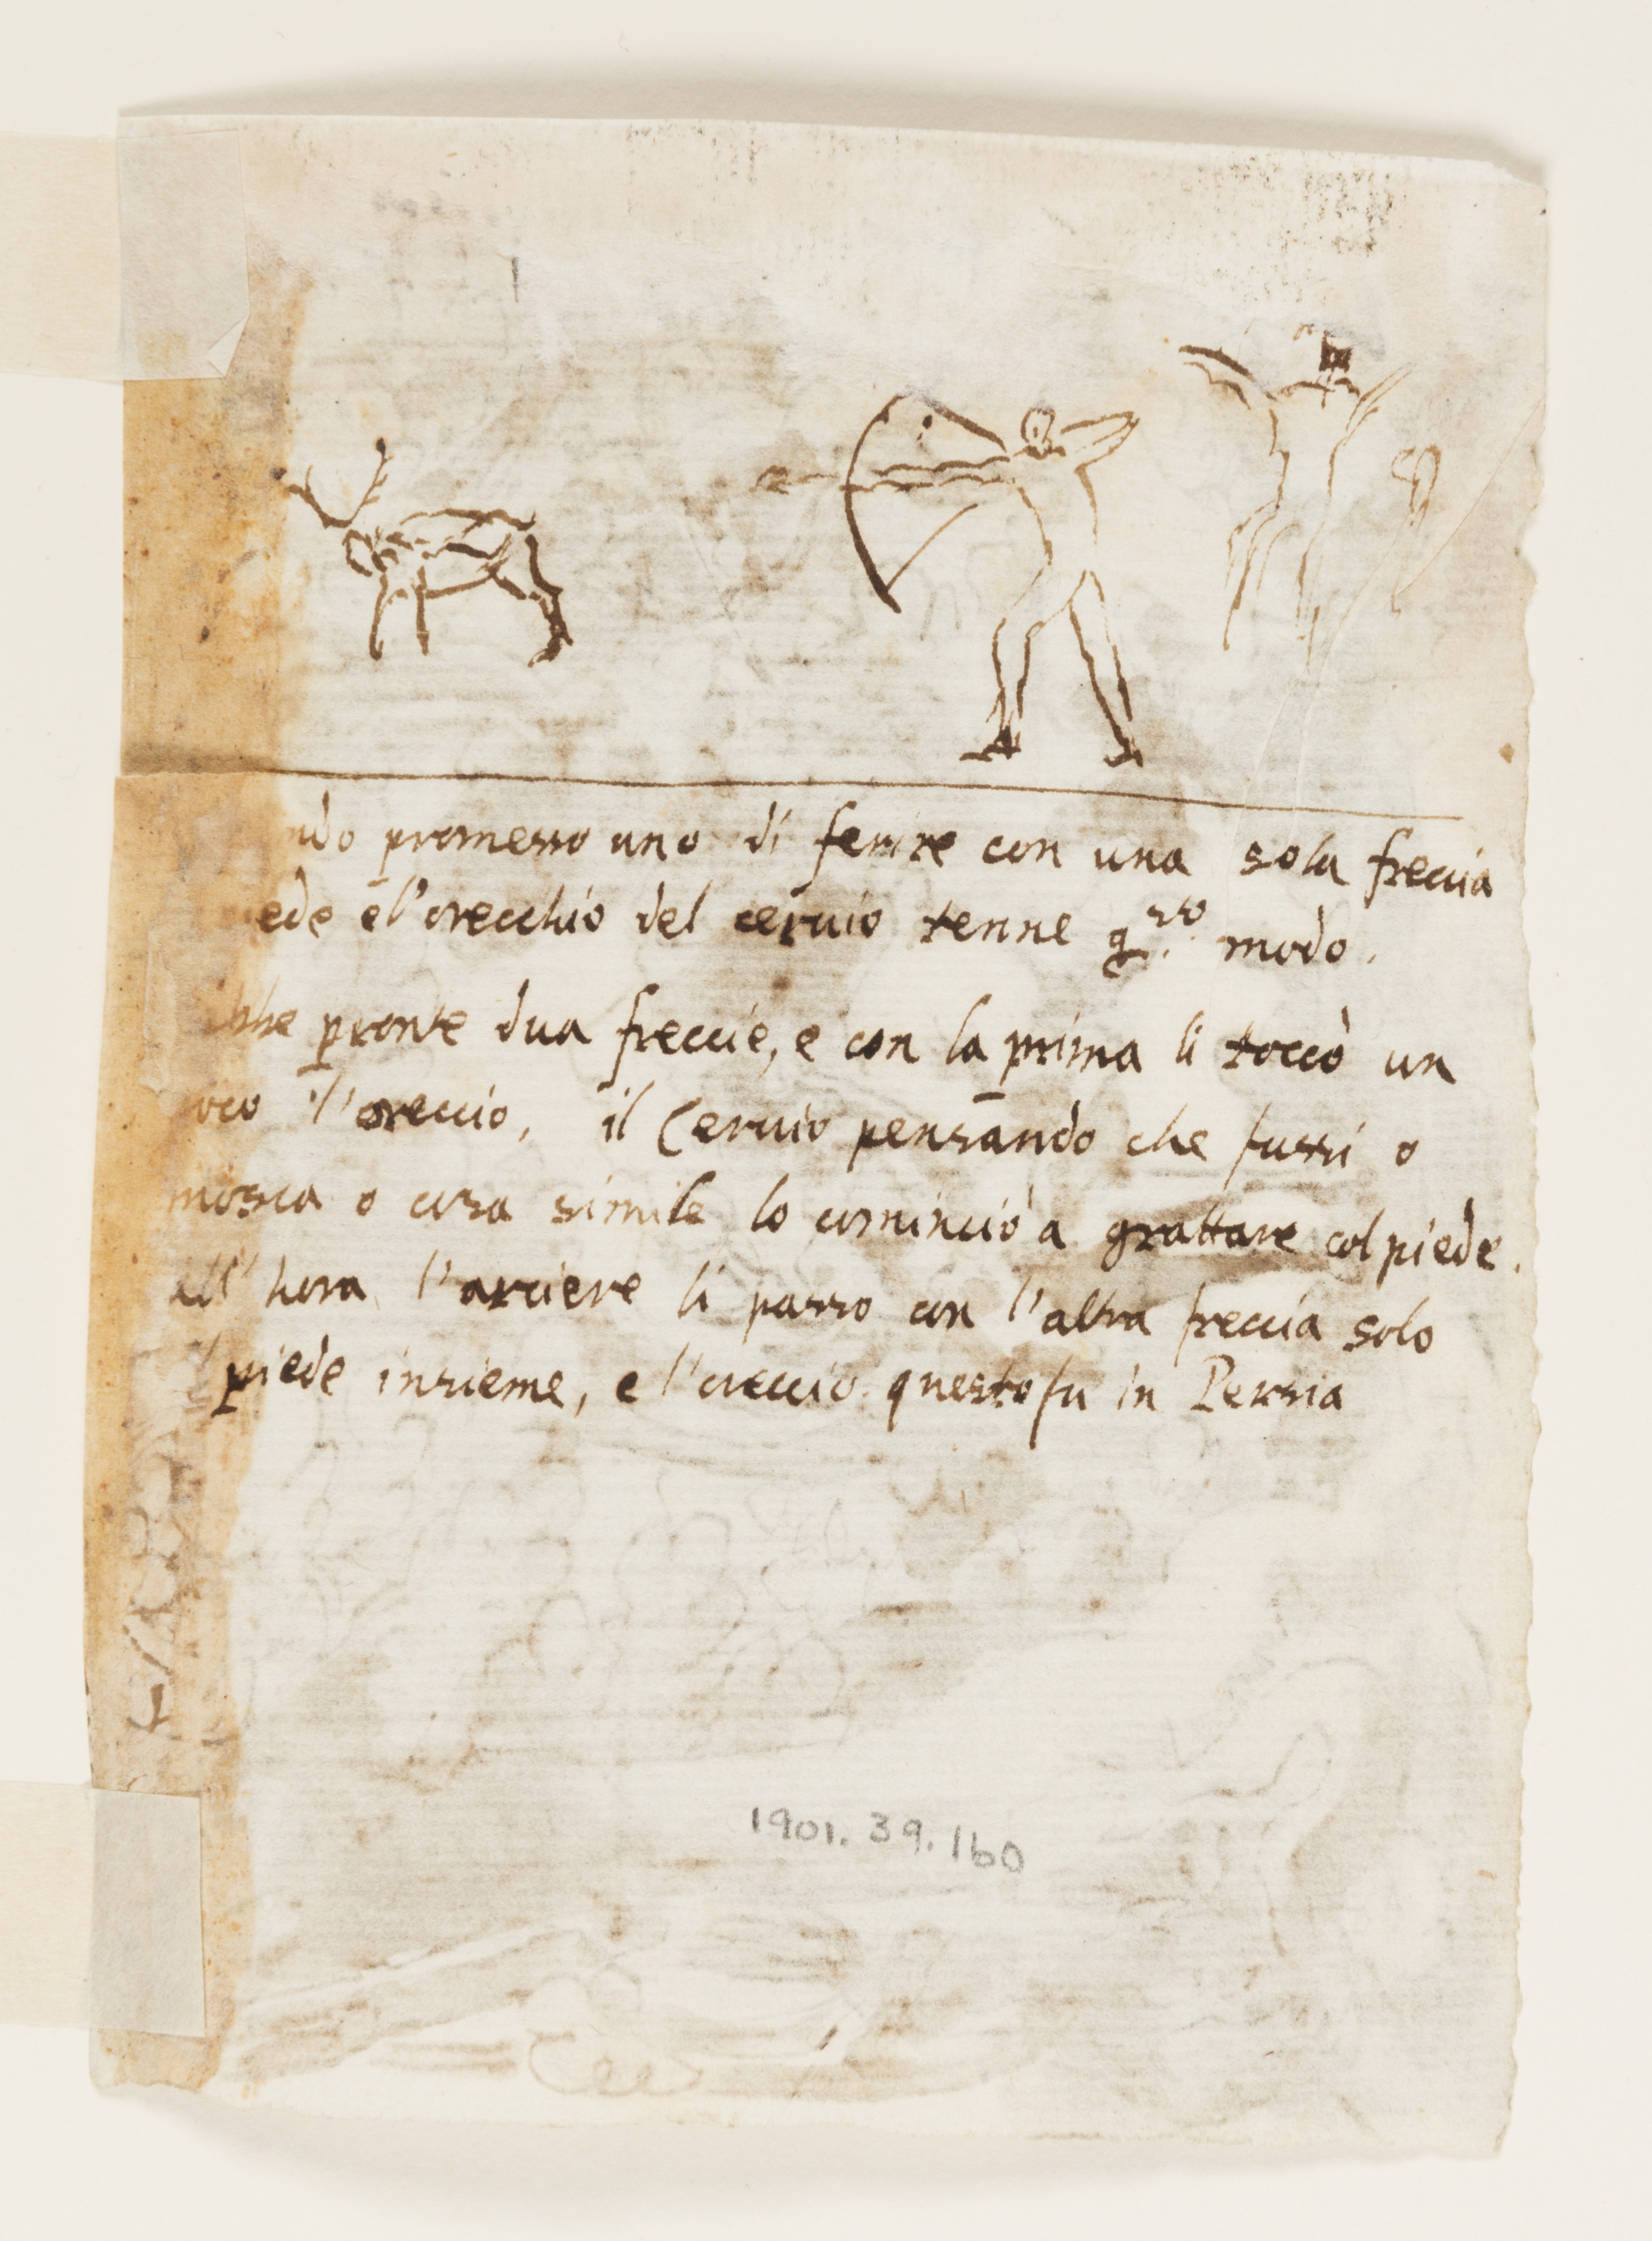 ndo promesso uno di ferire con una sola freccia
iede e l'orecchio del ceruio tenne q.sto modo.
bbe pronte dua freccie, e con la prima li toccò un
oco l'oreccio, il Ceruio pensando che fussi o
mosca o cosa simile lo cominciò a grattare col piede.
all'hora l'arciere li passo con l'altra freccia solo
il piede insieme, e l'oreccio. questo fu in Persia
1901.39.160